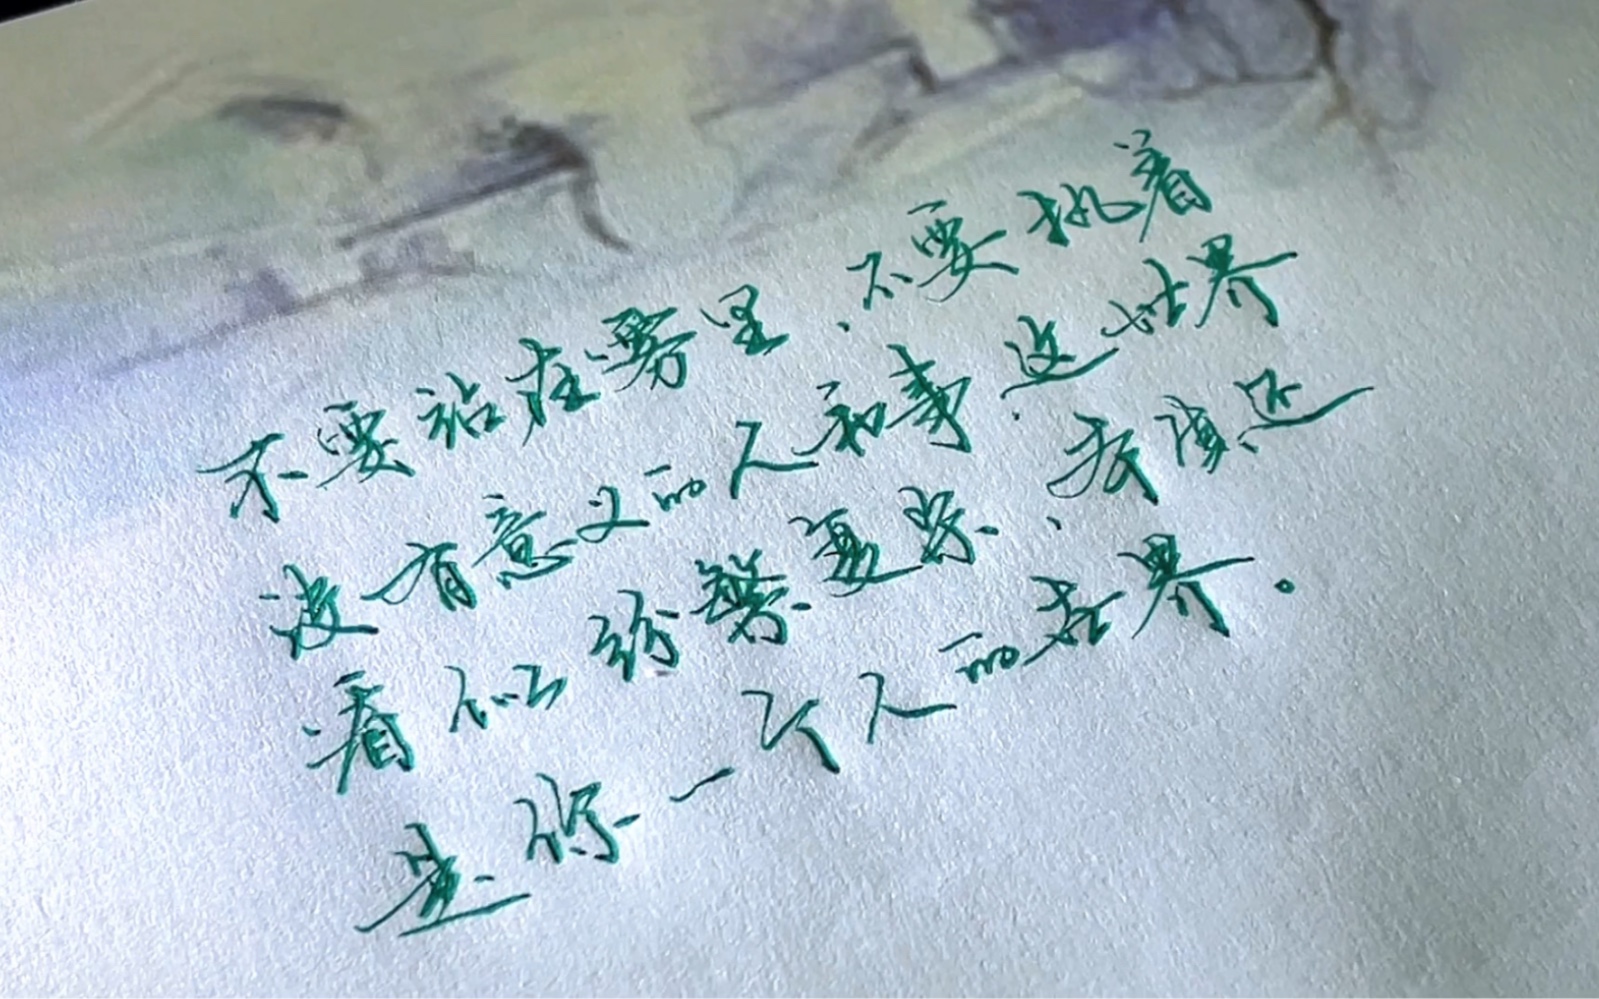 不要站在雾里、不要挑着
没有意义的人和事.这世界
看似纷繁复杂、其实还
是你一个人的世界。